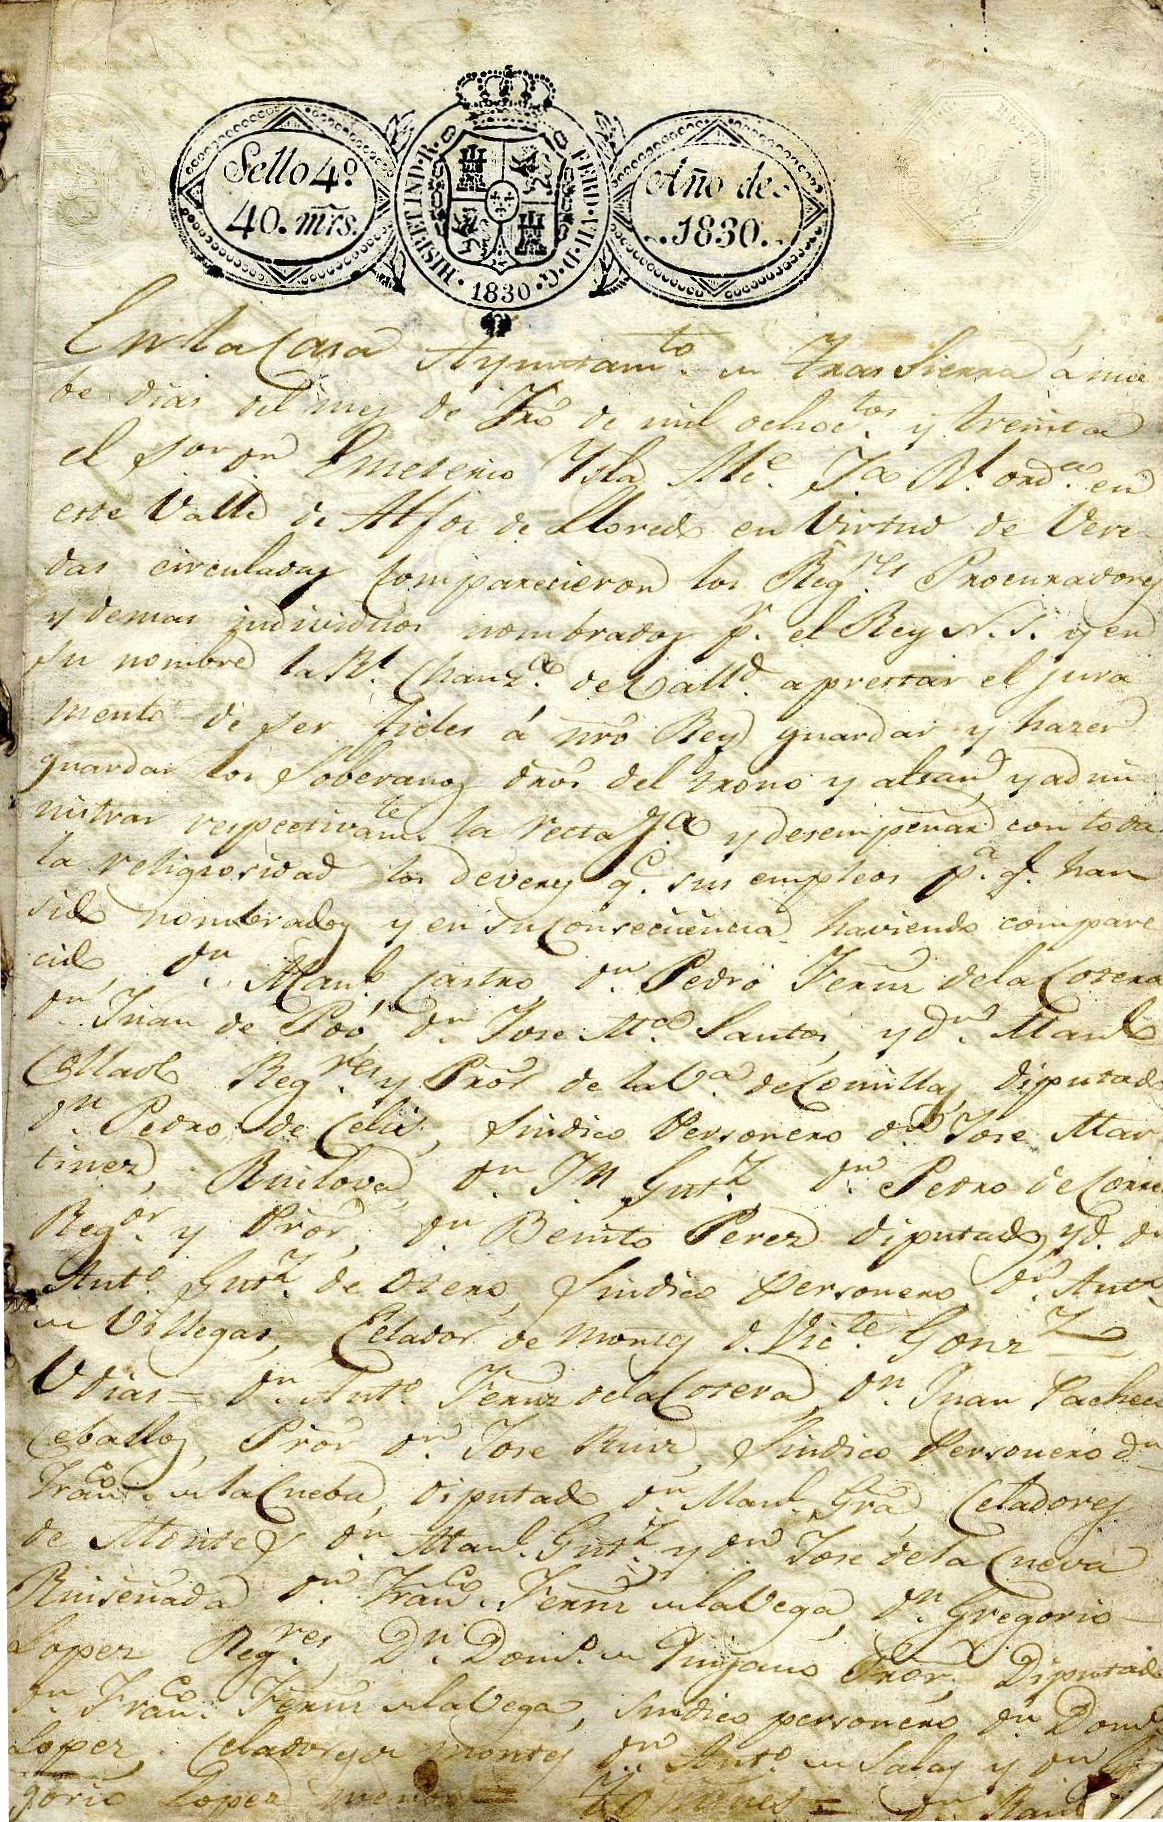 Sello 4º
40. mrs.
HISP. ET IND. R.
FERD. VII. D. G.
1830
Año de
1830.
En la Casa Ayuntamto. en Tras Sierra á nue
be dias del mes de Fro de mil ochoctos. y treinta
el Sor. Dn. Emeterio Ysla Ale. Ja. Rl. orda. en
este Valle de Alfoz de Lloredo en Virtud de Vere
das circuladas comparecieron los Regres. Procuradores
y demas individuos nombrados pr. el Rey N. S. y en
su nombre la Rl. Chanza. de Valld. a prestar el jura
mento de ser fieles á nro Rey guardar y hazer
guardar los Soberanos dros del trono y y admi
nistrar respectivamte. la recta Ja. y desempeñar con toda
la religiosidad los deveres q. sus empleos pa. q. han
sido nombrados y en su consecuencia haviendo compare
cido Dn. Manl. Castro Dn. Pedro Fernz de la Cotera
Dn. Juan de Poo, Dn. Jose Ma. Santos, y Dn. Manl.
Collado Regres. y Pror. de la Va. de Comillas, diputado
Dn. Pedro de Celis, Sindico Personero Dn. Jose Mar
tinez, Ruilova, Dn. Jn. Gutz. Dn. Pedro de
Regor. y Pror, Dn. Benito Perez diputado, y Dn.
Anto. Gutz. de Otero, Sindico Personero Dn. Anto.
de Villegas, Celador de montes D. Victe. Gonz
Udias = Dn. Anto. Fernz de la Cotera, Dn. Juan Pacheco
Ceballos, Pror Dn. Jose Ruiz, Sindico Personero Dn.
Franco. de la Cueba, diputado Dn. Manl. Gra, Celadores
de Montes Dn. Manl. Gutz. y Dn. Jose de la Cueva
Ruiseñada Dn. Franco. Fernz de la Vega, Dn. Gregorio
Lopez Regres, Dn. Domo. de Quijano Pror, Diputado
Dn. Franco. Fernz de la Vega, Sindico personero Dn. Domo.
Lopez, Celadores de montes Dn. Anto. de Salas y Dn. Gre
gorio Lopez menor = = Dn.